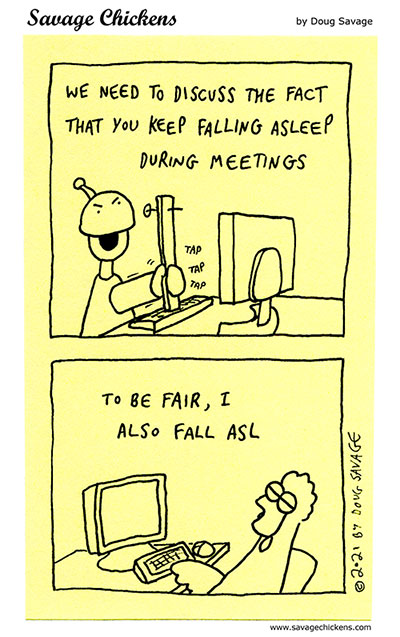 Savage Chickens
by Doug Savage
WE NEED TO DISCUSS THE FACT
THAT YOU KEEP FALLING ASLEEP
DURING MEETINGS
TAP
TAP
TAP
TO BE FAIR, I
ALSO FALL ASL
©2021 BY DOUG SAVAGE
www.savagechickens.com